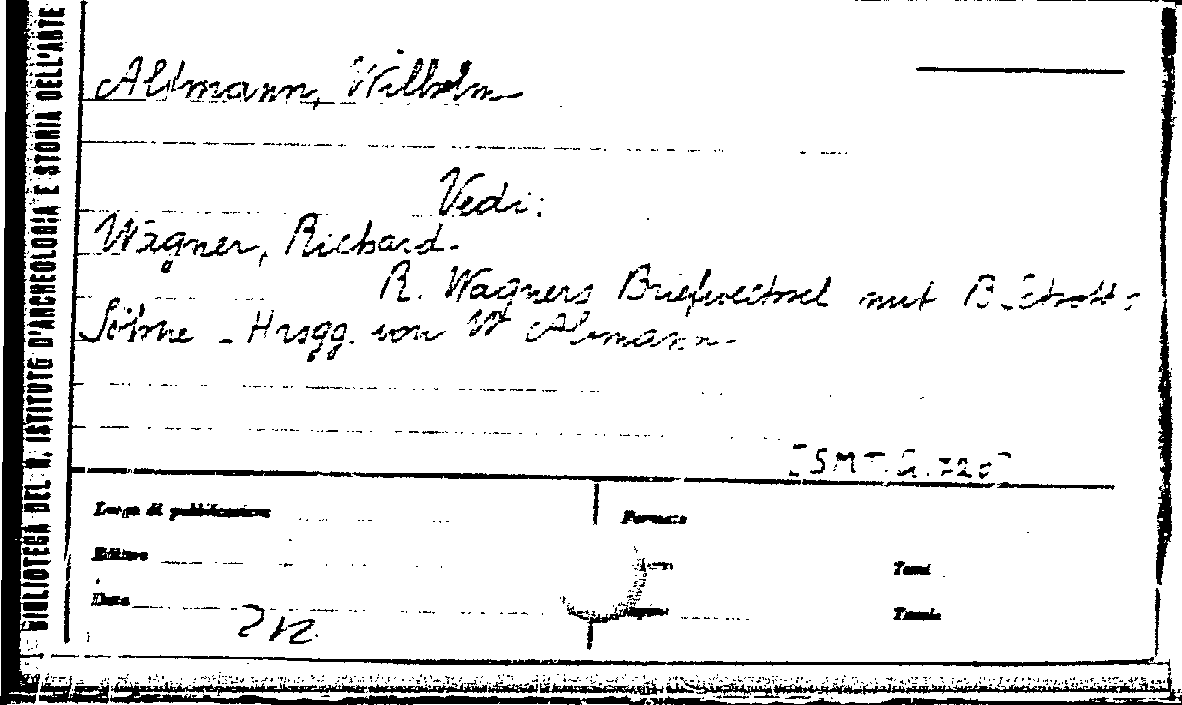 BIBLIOTECA DEL R. ISTITUTO D'ARCHEOLOGIA E STORIA DELL'ARTE
Altmann, Wilhelm
Vedi:
Wagner, Richard.
R. Wagners Briefwechsel mit B. Schott's
Söhne - Hrsgg. von W. Altmann.
[SMT.G.720]
Luogo di pubblicazione
Formato
Editore
Tomi
Data
Tavole